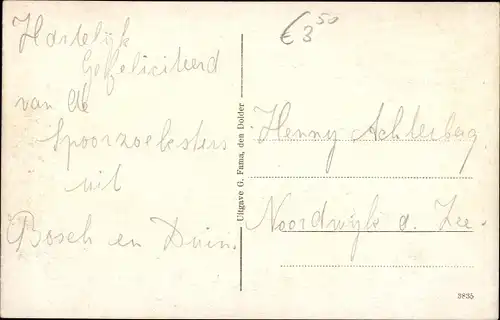 € 3 50
Hartelijk
Gefeliciteerd
van de
Spoorzoeksters
uit
Bosch en Duin.
Uitgave G. Fama, den Dolder
Henny Achterberg
Noordwijk a. Zee.
3835